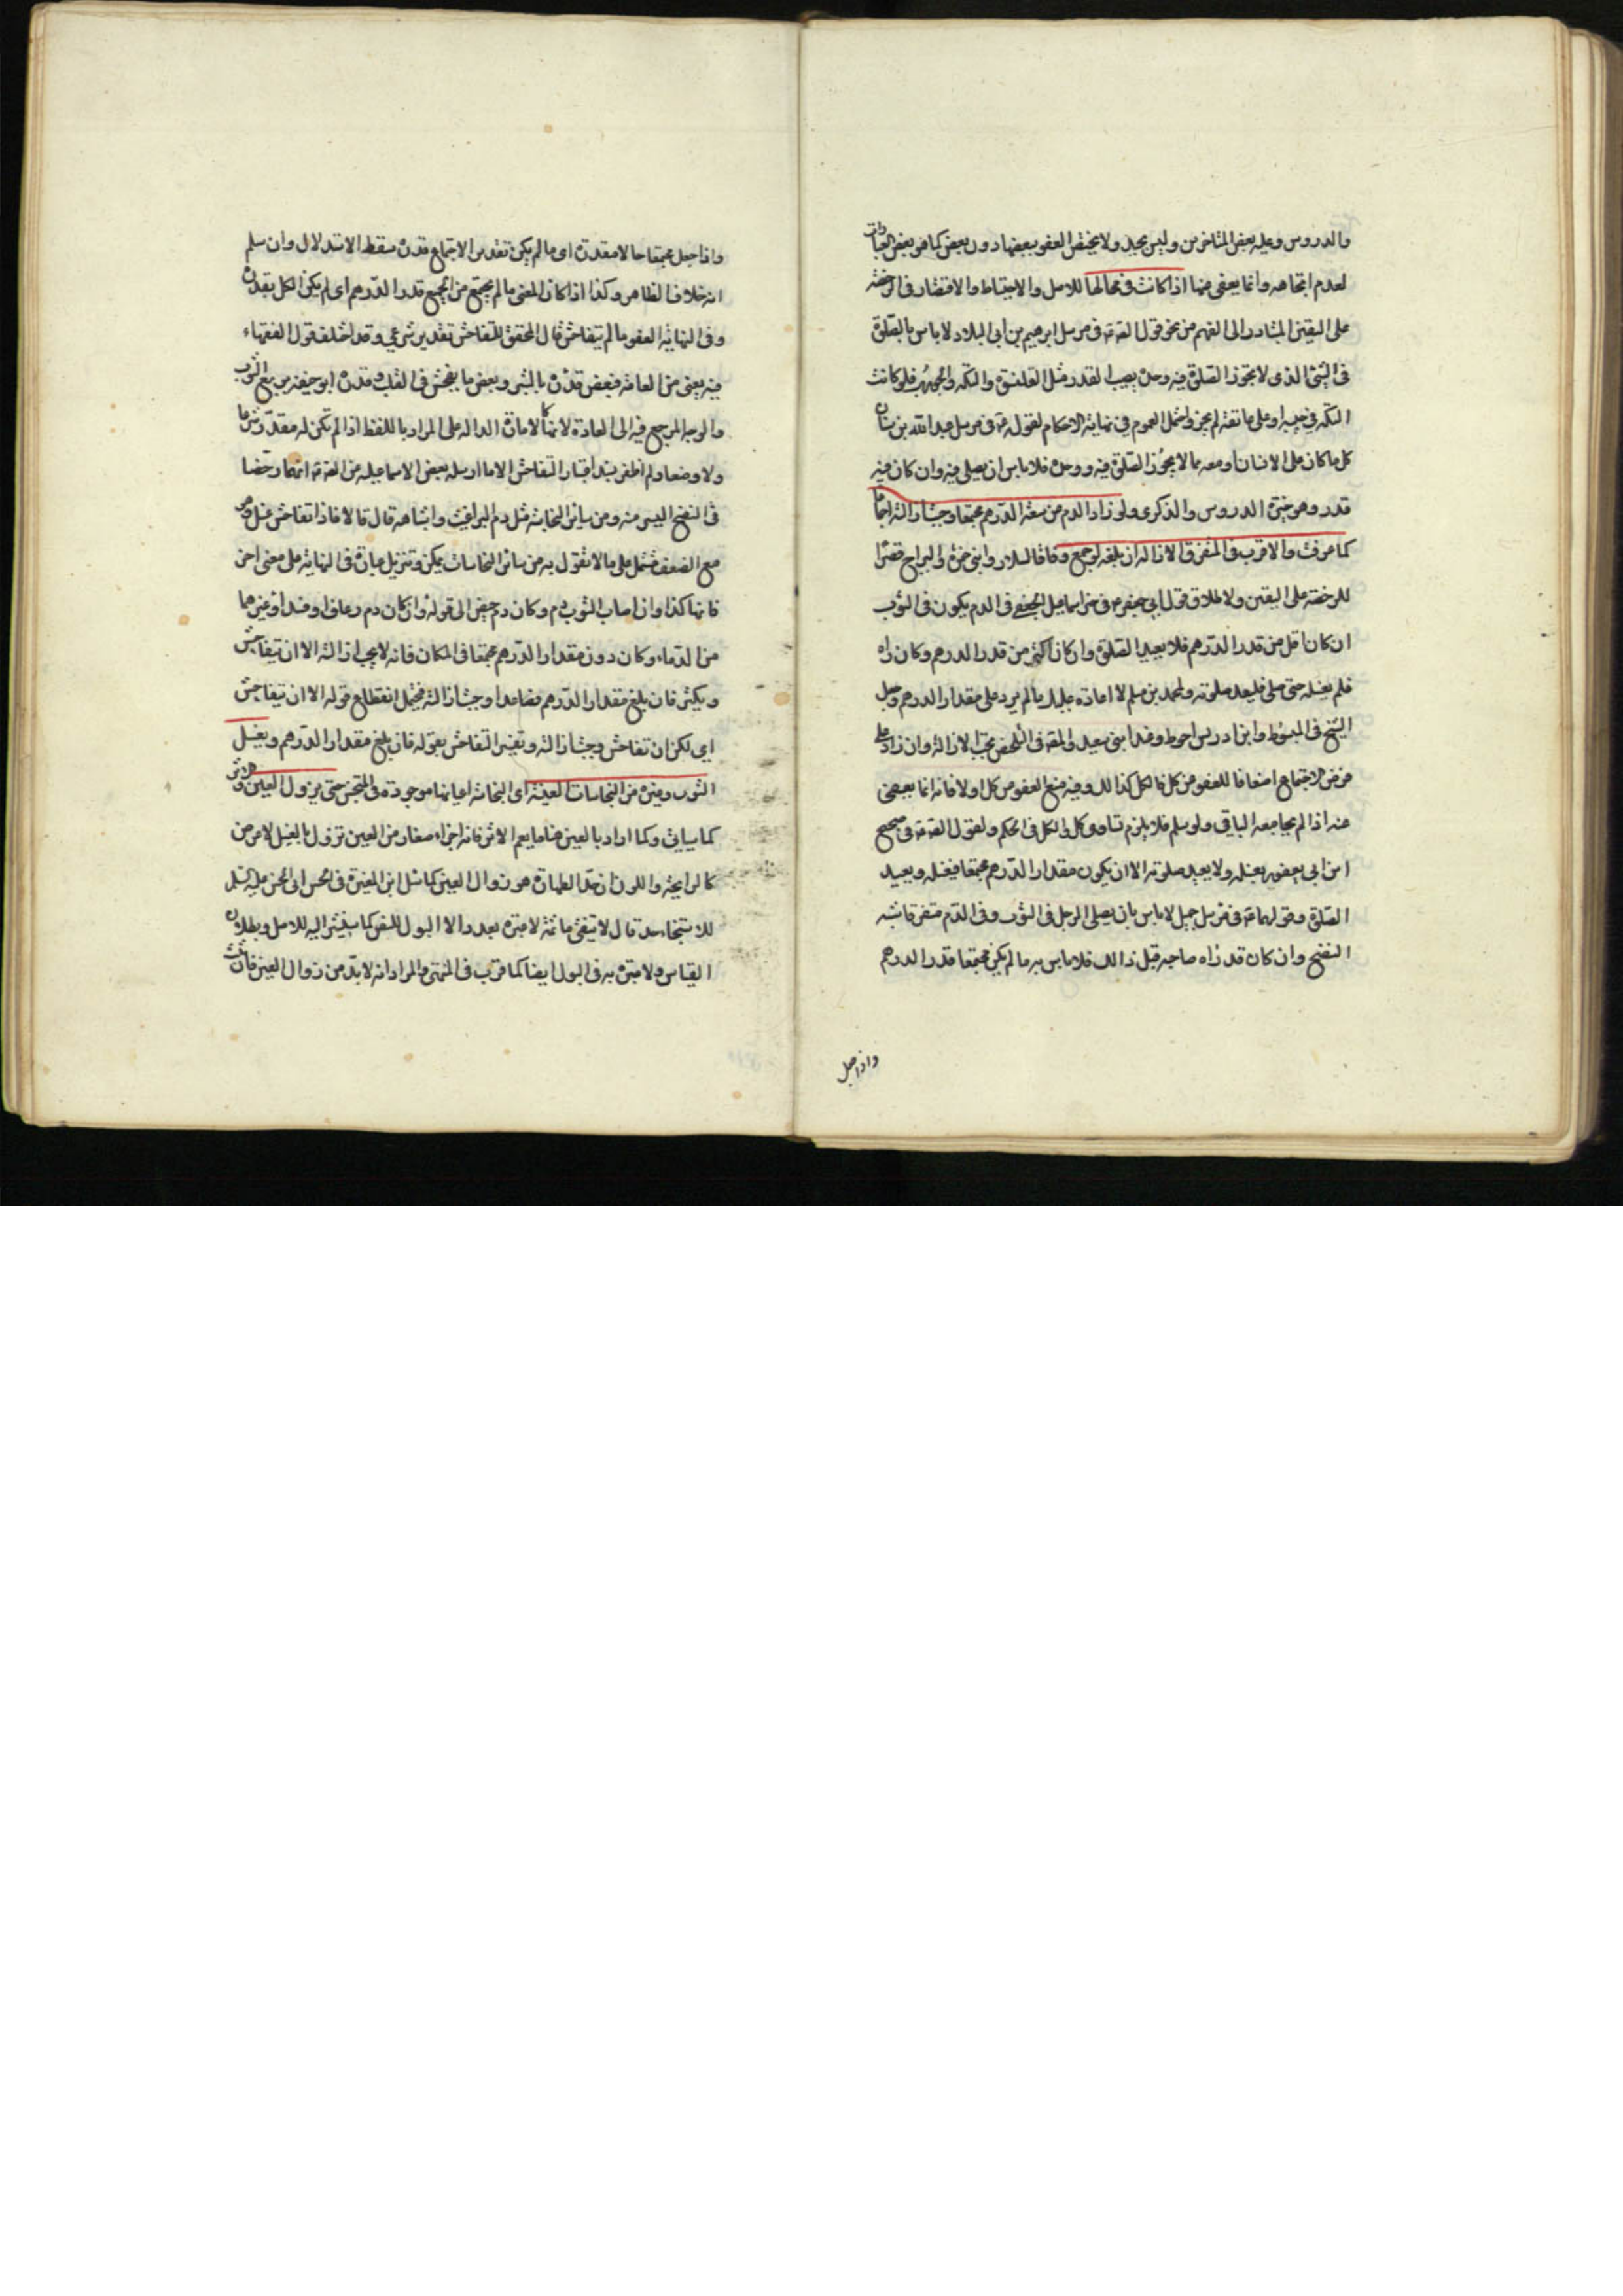 والدروس وعليه بعض المتاخرين وليس بجيد ولا يختص العفو ببعضها دون بعض كما في بعض العبارات
لعدم اتجاهه وانما يعفى عنها اذا كانت في محالها للاصل والاحتياط والاقتصار في الرخصة
على اليقين المتبادر الى الفهم من نحو قول الصادق ع في مرسل ابرهيم بن ابي البلاد لا باس بالصلوة
في الشئ الذي لا تجوز الصلوة فيه وحده يصيب القذر مثل القلنسوة والتكة والجورب فلو كانت
التكة في جيبه او على عاتقه لم يجز واحتمل العموم في نهاية الاحكام لقوله ع في مرسل عبد الله بن سنان
كل ما كان على الانسان او معه مما لا يجوز الصلوة فيه وحده فلا باس ان يصلى فيه وان كان فيه
قذر وهو خيرة الدروس والذكرى ولو زاد الدم عن سعة الدرهم مجتمعا وجبت ازالته اجماعا
كما عرفت والاقرب في المتفرق الازالة ان بلغه لو جمع وفاقا لسلار وابني حمزة والبراج قصرا
للرخصة على اليقين ولاطلاق قول ابي جعفر ع في خبر اسماعيل الجعفي في الدم يكون في الثوب
ان كان اقل من قدر الدرهم فلا يعيد الصلوة وان كان اكثر من قدر الدرهم وكان راه
فلم يغسله حتى صلى فليعد صلوته ولمحمد بن مسلم لا اعادة عليك ما لم يزد على مقدار الدرهم وجعل
الشيخ في المبسوط وابن ادريس احوط وعند ابني سعيد والمقنعة في التلخيص يجب الازالة وان زاد على
فرض الاجتماع اضعافا للعفو عن كل فالكل كذلك وفيه منع العفو عن كل اولا فانه انما يعفى
عنه اذا لم يجامعه الباقي ولو سلم فلا يلزم تساوى كل والكل في الحكم ولقول الصادق ع في صحيح
ابن ابي يعفور يغسله ولا يعيد صلوته الا ان يكون مقدار الدرهم مجتمعا فيغسله ويعيد
الصلوة وقولهما ع في مرسل جميل لا باس بان يصلي الرجل في الثوب وفى الدم متفرقا شبه
النضح وان كان قد راه صاحبه قبل ذالك فلا باس به ما لم يكن مجتمعا قدر الدرهم
واذا جعل
واذا جعل مجتمعا حالا مقدرة اى ما لم يكن تقدير الاجتماع قدره سقط الاستدلال وان سلم
انه خلاف الظاهر وكذا اذا كان المعنى ما لم يجتمع من الجميع قدر الدرهم اى لم يكن الكل بقدره
وفى النهاية العفو ما لم يتفاحش قال المحقق للتفاحش تقدير شرعي وقد اختلف قول الفقهاء
فيه يعنى من العامة فبعض قدره بالشبر وبعض ما يفحش في القلب وقدره ابو حنيفة بربع الثوب
والوجه المرجع فيه الى العادة لانها كالامارة الدالة على المراد باللفظ اذا لم تكن له مقدر شرعا
ولا وضعا ولم اظفر بسند اعتبار التفاحش الا ما ارسله بعض الاسماعيلية عن الصادق ع انهما رخصا
في النضح اليسير منه ومن سائر النجاسة مثل دم البراغيث واشباهه قال قالا فاذا تفاحش غسل وهو
مع الضعف مشتمل على ما لا نقول به من سائر النجاسات ويمكن تنزيل عبارة في النهاية على معنى اخر
فانها كذا وان اصاب الثوب دم وكان دم حيض الى قوله وان كان دم رعاف او فصد او غيرهما
من الدماء وكان دون مقدار الدرهم مجتمعا في المكان فانه لا يجب ازالته الا ان يتفاحش
ويكثر فان بلغ مقدار الدرهم فصاعدا وجبت ازالته فيحتمل انقطاع قوله الا ان يتفاحش
اي لكن ان تفاحش وجبت ازالته وتفسير التفاحش بقوله فان بلغ مقدار الدرهم ويغسل
الثوب وغيره من النجاسات العينية اى النجاسة اعيانها موجودة في المتنجس حتى يزول العين والاثر
كما سياتي وكما اراد بالعين هنا ما يعم الاثر فانه اجزاء صغار من العين تزول بالغسل لا عرض
كالرايحة واللون ان حد الطهارة هو زوال العين كما سئل ابن المغيرة في الحسن ابي الحسن عليه السلم
للاستنجاء حد قال لا ينقى ما ثمة لا عبرة بعدد الا البول للنص كما سيشير اليه للاصل وبطلان
القياس ولا عبرة به في البول ايضا كما قرب في المنتهى والمراد انه لا بد من زوال العين فان